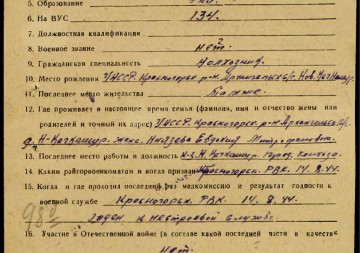 5. Образование
6. На ВУС 134.
7. Должностная квалификация
8. Военное звание нет.
9. Гражданская специальность Колхозник.
10. Место рождения УАССР. Красногорск. р-н.
11. Последнее место жительства
12. Где проживает в настоящее время семья (фамилия, имя и отчество жены или
родителей и точный их адрес) УАССР. Красногорск. р-н.
д. жена Князева Евдокия Митрофановна.
13. Последнее место работы и должность колхоза
14. Каким райгорвоенкоматом и когда призван Красногорск. РВК. 14.8.44.
15. Когда и где проходил последний раз медкомиссию и результат годности к
военной службе Красногорск. РВК. 14.8.44.
годен к нестроевой службе.
16. Участие в Отечественной войне (в составе какой последней части в качестве
нет.